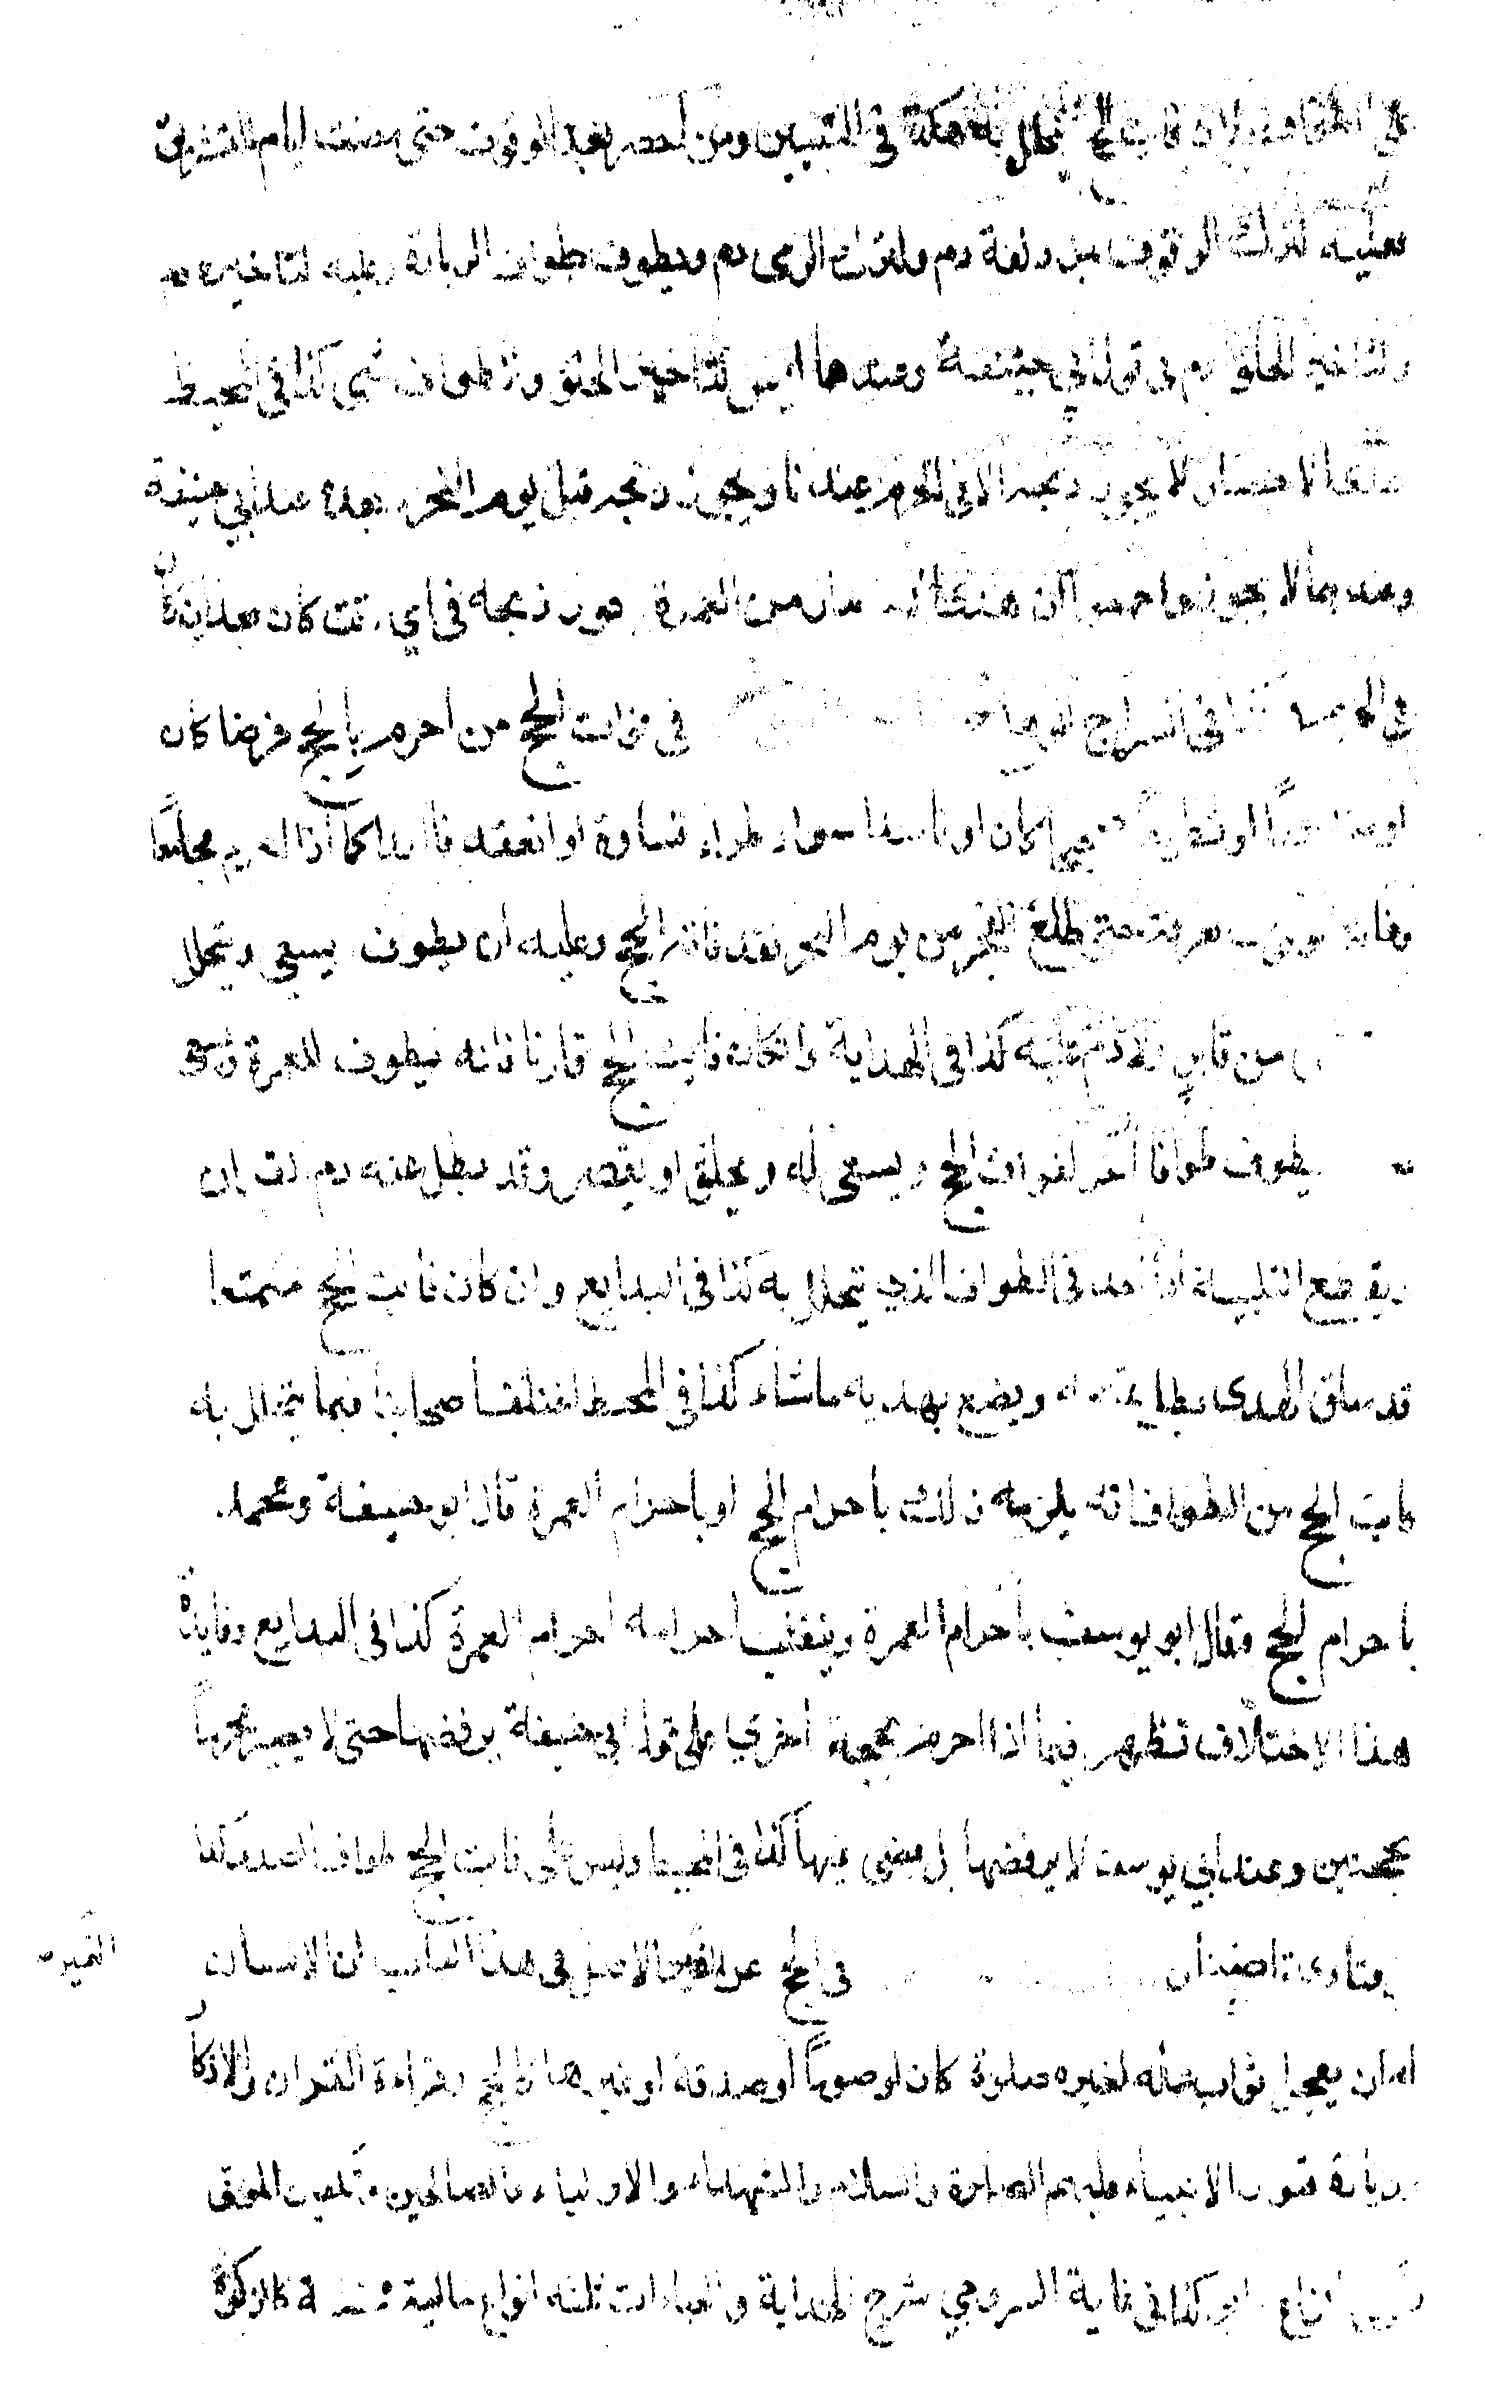 لان فايت الحج يتحلل به هكذا في التبيين ومن احصر بعد الوقوف حتى مضت ايام التشريق
فعليه لترك الوقوف بمزدلفة دم ولترك الرمي دم ويطوف طواف الزيارة وعليه لتاخيره دم
ولتاخير الحلق دم في قول ابي حنيفة وعندهما ليس لتاخير الحلق والطواف شي كذا في المحيط
الاحصار لا يجوز ذبحه الا في الحرم عندنا ويجوز ذبحه قبل يوم النحر وبعده عند ابي حنيفة
وعندهما لا يجوز واجمعوا ان من العمرة يجوز ذبحه في اي وقت كان بعد ان كان
في الحرم كذا في السراج الوهاج في فوات الحج من احرم بالحج فرضا كان
او منذورا او تطوعا صحيحا كان او فاسدا سواء طراء فساده او انعقد فاسدا كما اذا احرم مجامعا
وفاته الوقوف بعرفة حتى طلع الفجر من يوم النحر فقد فاته الحج وعليه ان يطوف ويسعى ويتحلل
من قابل ولا دم عليه كذا في الهداية وان كان فايت الحج قارنا فانه يطوف للعمرة ويسعى
يطوف طوافا آخر لفوات الحج ويسعى له ويحلق او يقصر وقد بطل عنه دم القران
ويقطع التلبية اذا اخذ في الطواف الذي يتحلل به كذا في البدايع وان كان فايت الحج متمتعا
قد ساق الهدى بطل تمتعه ويصنع بهديه ما شاء كذا في المحيط اختلف اصحابنا فيما يتحلل به
فايت الحج من الطواف انه يلزمه ذلك باحرام الحج او باحرام العمرة قال ابو حنيفة ومحمد
باحرام الحج وقال ابو يوسف باحرام العمرة وينقلب احرامه احرام العمرة كذا في البدايع وفايدة
هذا الاختلاف تظهر فيما اذا احرم بحجة اخرى على قول ابي حنيفة يرفضها حتى لا يصير محرما
بحجتين وعند ابي يوسف لا يرفضها بل يمضي فيها كذا في المحيط وليس على فايت الحج طواف الصدر كذا
فتاوى قاضيخان في الحج عن الغير الاصل في هذا الباب ان الانسان
له ان يجعل ثواب عمله لغيره صلوة كان او صوما او صدقة او غيرها كالحج وقراءة القران والاذكار
وزيارة قبور الانبياء عليهم الصلوة والسلام والشهداء والاولياء والصالحين وتكفين الموتى
انواع البر كذا في غاية السروجي شرح الهداية والعبادات ثلثة انواع مالية محضة كالزكوة